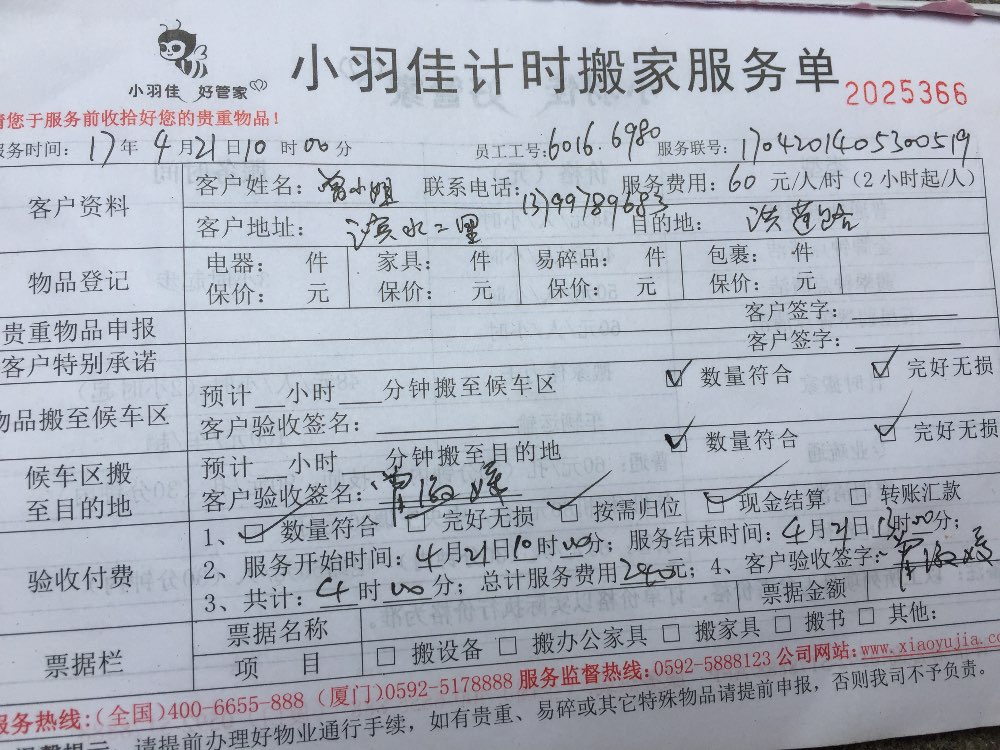 小羽佳 好管家
小羽佳计时搬家服务单
2025366
请您于服务前收拾好您的贵重物品!
服务时间: 17年4月21日10时00分 员工工号:6016.6980 服务联号:1704201405300519
客户资料
客户姓名:曾小姐 联系电话:13799789683 服务费用:60元/人/时(2小时起/人)
客户地址: 滨水二里 目的地: 洪莲路
物品登记
电器: 件 家具: 件 易碎品: 件 包裹: 件
保价: 元 保价: 元 保价: 元 保价: 元
贵重物品申报 客户签字:
客户特别承诺 客户签字:
物品搬至候车区
预计__小时___分钟搬至候车区 数量符合 完好无损
客户验收签名:
候车区搬至目的地
预计 小时 分钟搬至目的地 数量符合 完好无损
客户验收签名:
验收付费
1、□数量符合 □完好无损 □按需归位 □现金结算 □转账汇款
2、服务开始时间:4月21日10时00分;服务结束时间:4月21日13时00分;
3、共计:4时00分;总计服务费用240元;4、客户验收签字:
票据栏
票据名称 票据金额
项 目 □搬设备 □搬办公家具 □搬家具 □搬书 □其他:
服务热线:(全国)400-6655-888 (厦门)0592-5178888 服务监督热线:0592-5888123 公司网站:www.xiaoyujia.co
温馨提示 请提前办理好物业通行手续,如有贵重、易碎或其它特殊物品请提前申报,否则我司不予负责。